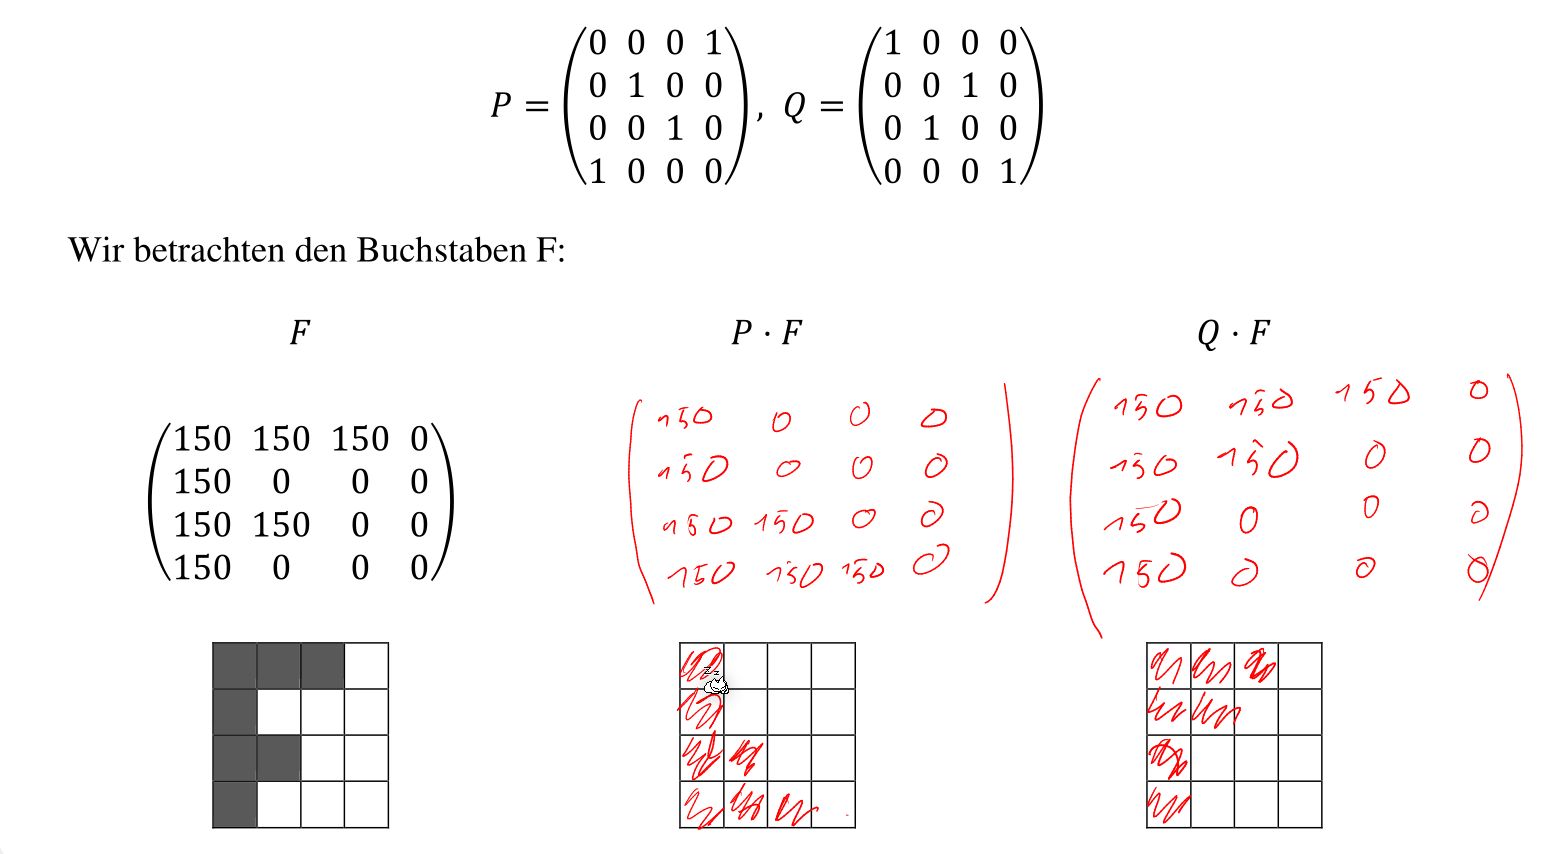 P = (0 0 0 1
0 1 0 0
0 0 1 0
1 0 0 0), Q = (1 0 0 0
0 0 1 0
0 1 0 0
0 0 0 1)
Wir betrachten den Buchstaben F:
F
(150 150 150 0
150 0 0 0
150 150 0 0
150 0 0 0)
P · F
(150 0 0 0
150 0 0 0
150 150 0 0
150 150 150 0)
Q · F
(150 150 150 0
150 150 0 0
150 0 0 0
150 0 0 0)